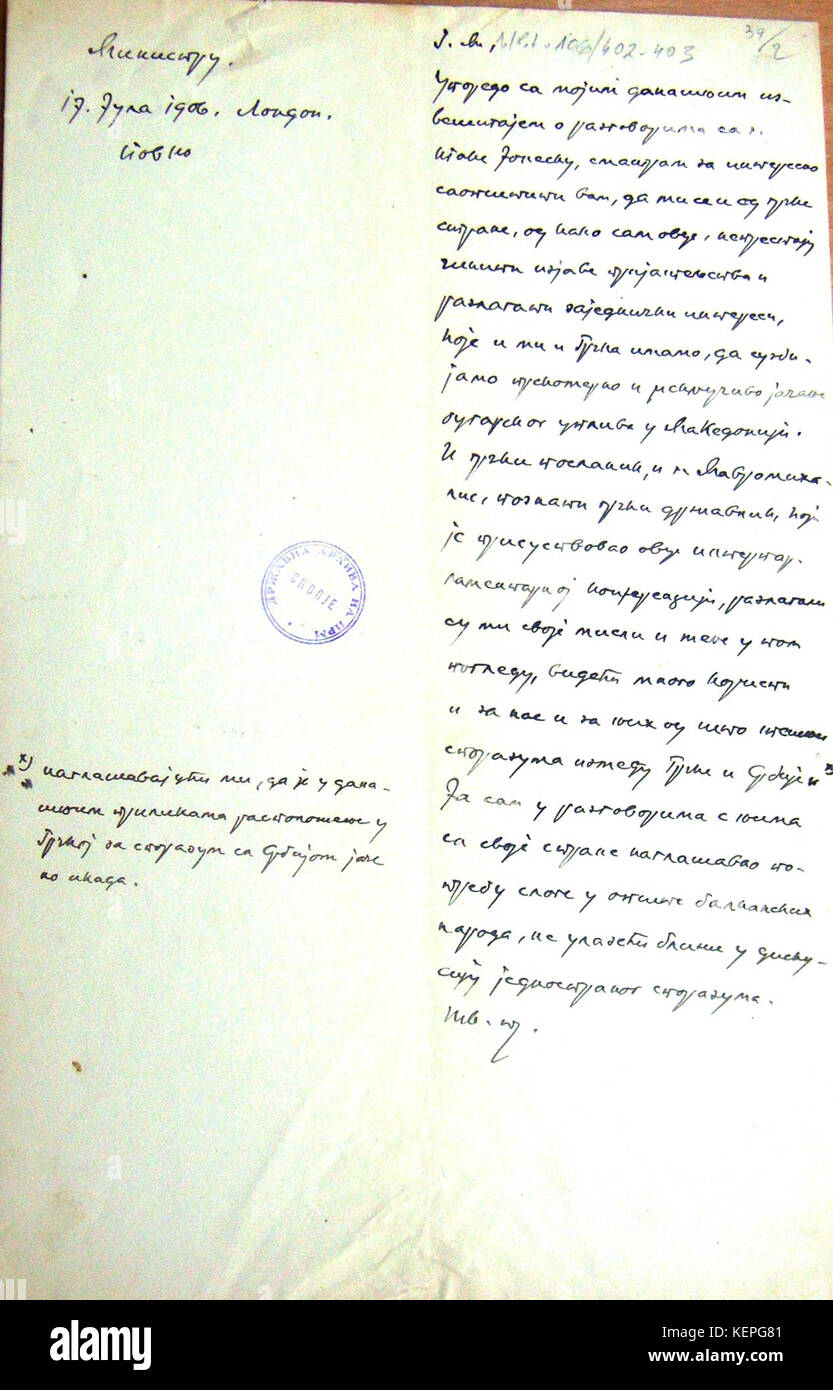 Министру.
17. Јула 1906. Лондон.
Г. М.,
402-403
39/2
Упоредо са мојим данашњим из-
вештајем о разговорима са г.
Таке Јонеску, сматрам за интересно
саопштити вам, да ми се и од грчке
стране, од како сам овде, непрестају
чинити изјаве пријатељства и
разлагати заједнички интереси,
које и ми и Грчка имамо, да сузби-
јамо прекомерно и искључиво јачање
бугарског утицаја у Македонији.
И грчки посланик, и г. Мавромиха-
лис, познати грчки државник, који
је присуствовао овде интерпар-
ламентарној конференцији, разлагали
су ми своје мисли и жеље у том
погледу, видећи много користи
и за нас и за њих од што
споразума између Грчке и Србије х)
Ја сам у разговорима с њима
са своје стране наглашавао по-
требу слоге у опште балканских
народа, не улазећи ближе у диску-
сију једностраног споразума.
х) наглашавајући ми, да је у дана-
шњим приликама расположење у
Грчкој за споразум са Србијом јаче
но икада.
ДРЖАВНА АРХИВА НА НРМ
СКОПЈЕ
alamy stock photo
KEPG81
www.alamy.com